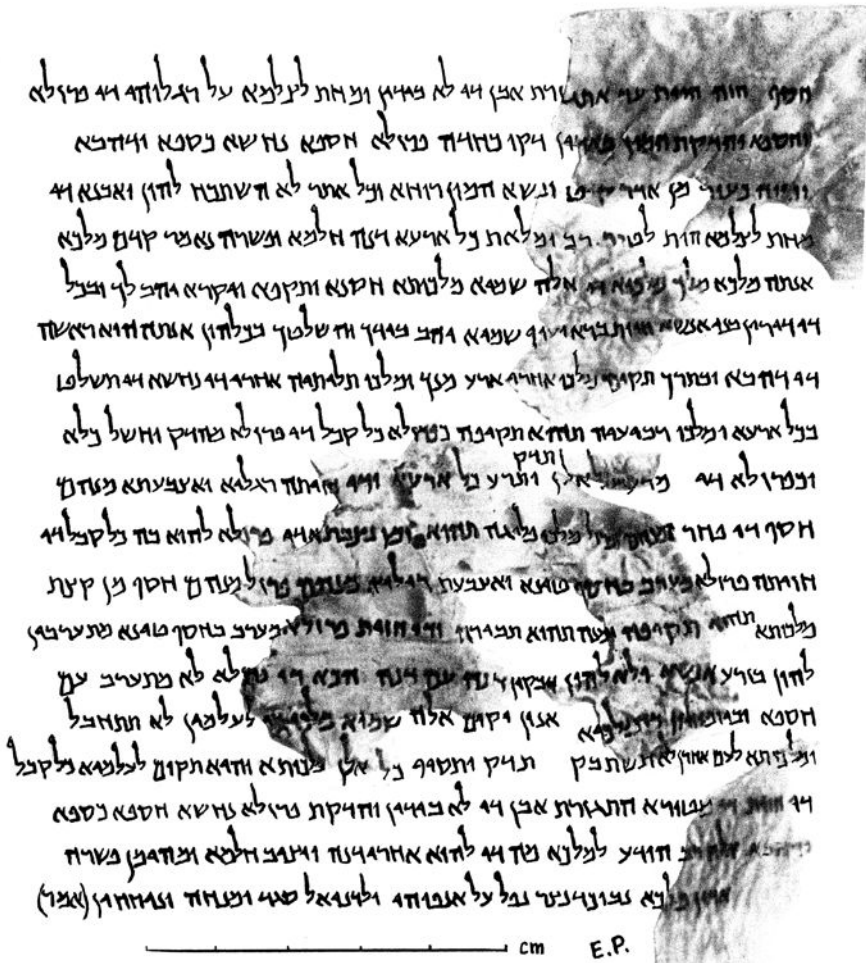 חסף חזה הוית עד אתגזרת אבן די לא בידין ומחת לצלמא על רגלוהי די פרזלא
וחספא והדקת המון באדין דקו כחדה פרזלא חספא נחשא כספא ודהבא
והוו כעור מן אדרי קיט ונשא המון רוחא וכל אתר לא השתכח להון ואבנא די
מחת לצלמא הות לטור רב ומלאת כל ארעא דנה חלמא ופשרה נאמר קדם מלכא
אנתה מלכא מלך מלכיא די אלה שמיא מלכותא חסנא ותקפא ויקרא יהב לך ובכל
די דירין בני אנשא חיות ברא ועוף שמיא יהב בידך והשלטך בכלהון אנתה הוא ראשה
די דהבא ובתרך תקום מלכו אחרי ארע מנך ומלכו תליתיה אחרי די נחשא די תשלט
בכל ארעא ומלכו רביעיה תהוא תקיפה כפרזלא כל קבל די פרזלא מהדק וחשל כלא
תדק
וכפרזלא די אלין ותרע כל ארעא ודי חזיתה רגליא ואצבעתא מנהון
חסף די פחר ומנהון פרזל מלכו פליגה תהוא ומן נצבתא די פרזלא להוא בה כל קבל די
חזיתה פרזלא מערב בחסף טינא ואצבעת רגליא מנהון פרזל מנהון חסף מן קצת
מלכותא תהוה תקיפה ומנה תהוא תבירה ודי חזית פרזלא מערב בחסף טינא מתערבין
להון בזרע אנשא ולא להון דבקין דנה עם דנה הכא די פרזלא לא מתערב עם
חספא וביומיהון די מלכיא אנון יקים אלה שמיא לעלמין לא תתחבל
ומלכותא לעם אחרן לא תשתבק תדק ותסיף כל אלין מלכותא והיא תקום לעלמיא כל קבל
די חזית די מטורא התגזרת אבן די לא בידין והדקת פרזלא נחשא חספא כספא
ודהבא אלה רב הודע למלכא מה די להוא אחרי דנה ויציב חלמא ומהימן פשרה
אדין מלכא נבוכדנצר נפל על אנפוהי ולדניאל סגד ומנחה וניחחין (אמר)
cm E.P.